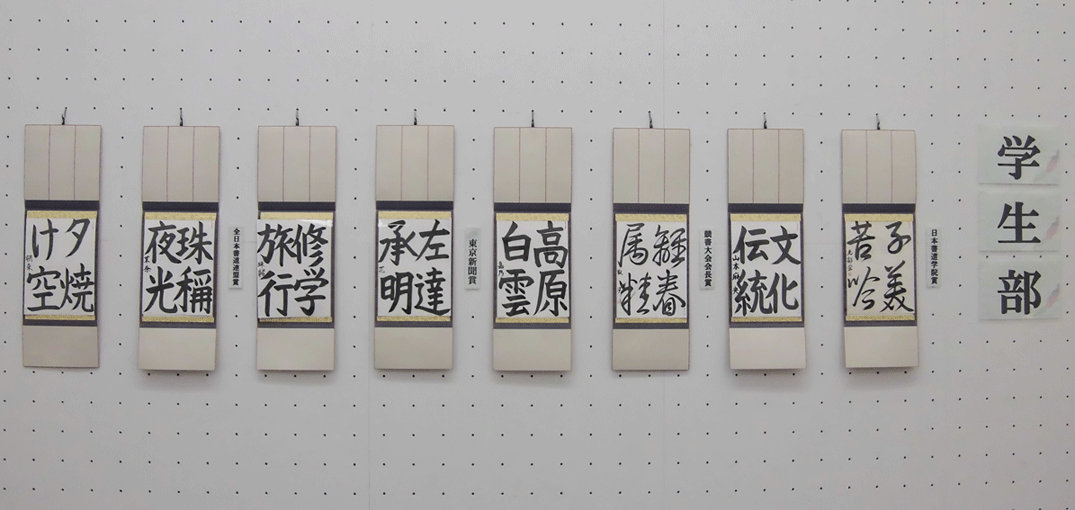 学生部
日本書道学院賞
子美
苦吟
文化
伝統
競書大会会長賞
高原
白雲
東京新聞賞
左達
承明
修学
旅行
全日本書道連盟賞
珠稱
夜光
夕焼
け空